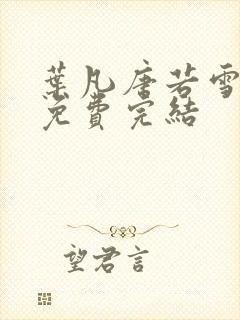 葉凡唐若雪
免費完結
望君言